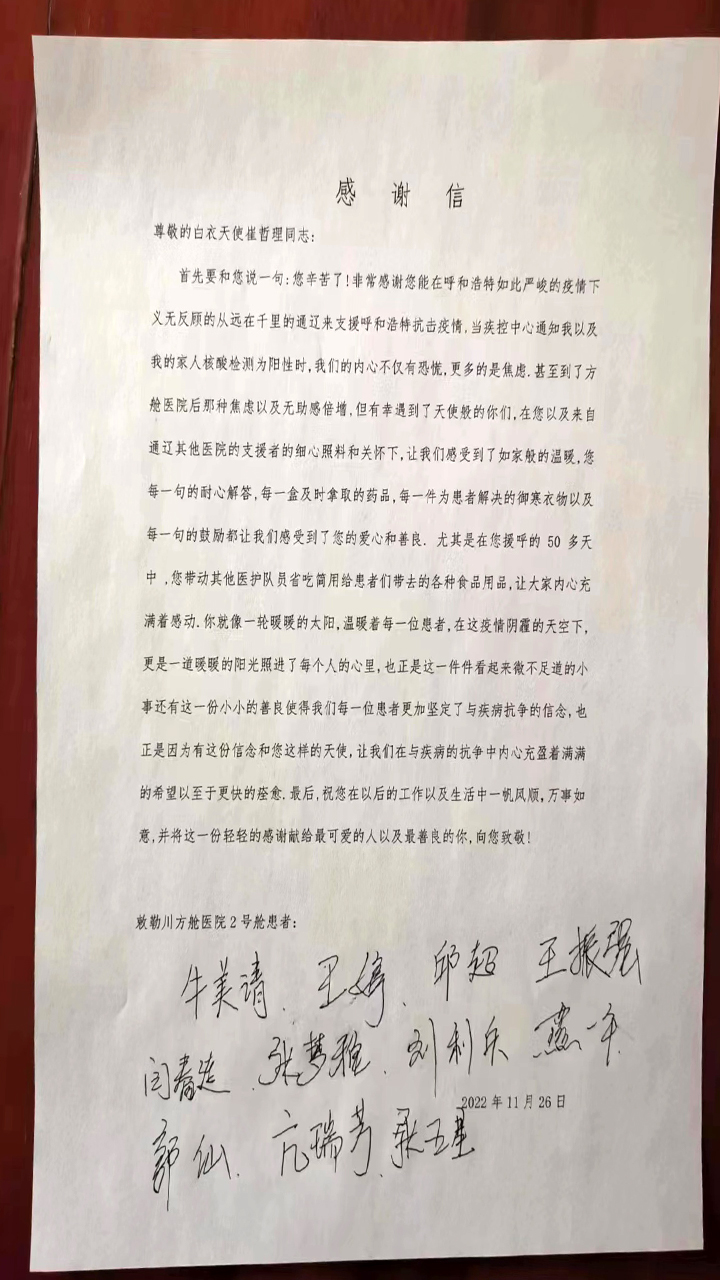 感 谢 信
尊敬的白衣天使崔哲理同志:
首先要和您说一句:您辛苦了!非常感谢您能在呼和浩特如此严峻的疫情下
义无反顾的从远在千里的通辽来支援呼和浩特抗击疫情.当疾控中心通知我以及
我的家人核酸检测为阳性时,我们的内心不仅有恐慌,更多的是焦虑.甚至到了方
舱医院后那种焦虑以及无助感倍增,但有幸遇到了天使般的你们,在您以及来自
通辽其他医院的支援者的细心照料和关怀下,让我们感受到了如家般的温暖,您
每一句的耐心解答,每一盒及时拿取的药品,每一件为患者解决的御寒衣物以及
每一句的鼓励都让我们感受到了您的爱心和善良. 尤其是在您援呼的 50 多天
中 ,您带动其他医护队员省吃简用给患者们带去的各种食品用品,让大家内心充
满着感动.你就像一轮暖暖的太阳,温暖着每一位患者,在这疫情阴霾的天空下,
更是一道暖暖的阳光照进了每个人的心里,也正是这一件件看起来微不足道的小
事还有这一份小小的善良使得我们每一位患者更加坚定了与疾病抗争的信念,也
正是因为有这份信念和您这样的天使,让我们在与疾病的抗争中内心充盈着满满
的希望以至于更快的痊愈.最后,祝您在以后的工作以及生活中一帆风顺,万事如
意,并将这一份轻轻的感谢献给最可爱的人以及最善良的你,向您致敬!
敕勒川方舱医院 2 号舱患者:
牛美请、王婷、邱超 王振强
闫春连、张梦雅、刘利兵
2022 年 11 月 26 日
郭仙、亢瑞芳、